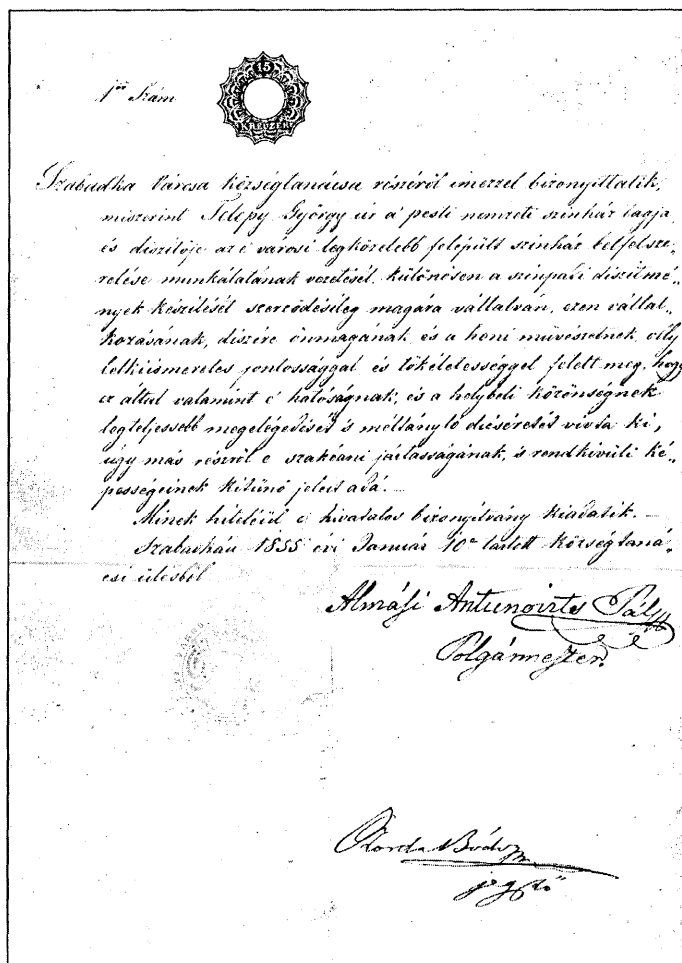 1ső Szám
15
KREUZER
Szabadka Városa községtanácsa részéről imezzel bizonyittatik,
miszerint Telepy György úr a' pesti nemzeti szinház tagja
és diszitője az é városi legközelebb felépült szinház belfelsze„
relése munkálatának vezetését, különösen a szinpadi diszitmé„
nyek készitését szerződésileg magára vállalván, ezen vállal„
kozásának, diszére önmagának és a honi müvészetnek, olly
lelkiismeretes pontossággal és tökéletességgel felelt meg, hogy
ez által valamint é hatóságnak, és a helybeli közönségnek
legteljesebb megelégedését is méltányló dicséretét vivta ki,
úgy más részről e szakbani jártasságának, is rendkivüli ké„
pességeinek kitünő jeleit adá. —
Minek hiteléül e hivatalos bizonyitvány kiadatik. —
Szabadkán 1855 évi Január 10én tartott községtaná„
csi ülésből
Almási Antunovits Pál
Polgármester.
jegyző